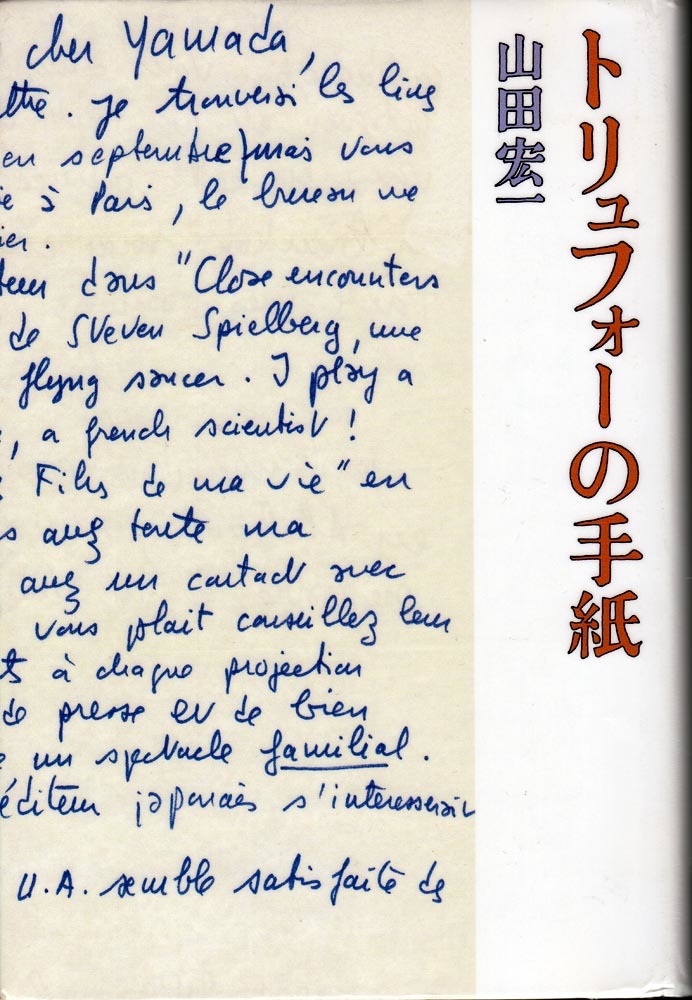 トリュフォーの手紙
山田宏一
cher Yamada,
ttre. je trouverai les livres
en septembre) mais vous
ie à Paris, le bureau ne
ier.
teur dans "Close encounters
de Steven Spielberg, une
flyng saucer. I play a
, a french scientist !
Films de ma vie" en
s avez toute ma
avez un contact avec
vous plait conseillez leur
ts à chaque projection
de presse et de bien
e un spectacle familial.
éditeur japonais s'interesserait
U.A. semble satisfaite de